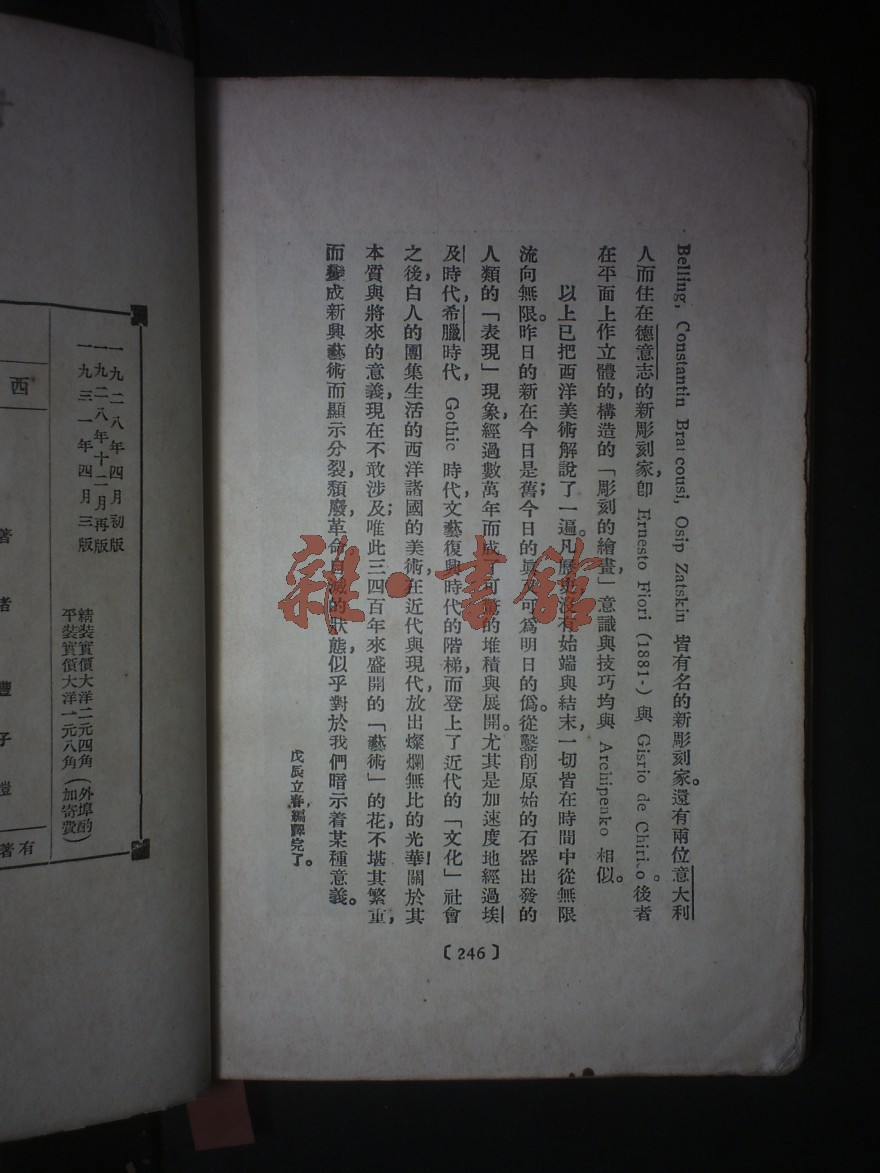 Belling, Constantin Brancousi, Osip Zatskin 皆有名的新彫刻家。還有兩位意大利
人而住在德意志的新彫刻家,卽 Ernesto Fiori (1881-) 與 Gisrio de Chirico。後者
在平面上作立體的,構造的「彫刻的繪畫」,意識與技巧均與 Archipenko 相似。
以上已把西洋美術解說了一遍。凡歷史沒有始端與結末,一切皆在時間中從無限
流向無限。昨日的新在今日是舊;今日的眞或可爲明日的僞。從鑿削原始的石器出發的
人類的「表現」現象,經過數萬年而成了可驚的堆積與展開。尤其是加速度地經過埃
及時代,希臘時代, Gothic 時代,文藝復興時代的階梯,而登上了近代的「文化」社會
之後,白人的團集生活的西洋諸國的美術,在近代與現代,放出燦爛無比的光華!關於其
本質與將來的意義,現在不敢涉及;唯此三四百年來盛開的「藝術」的花,不堪其繁重,
而變成新興藝術而顯示分裂,頽廢,革命,自滅的狀態,似乎對於我們暗示着某種意義。
戊辰立春,編譯完了。
〔246〕
一九二八年四月初版
一九二八年十二月再版
一九三一年四月三版
精裝實價大洋二元四角
平裝實價大洋一元八角
(外埠酌
加寄費)
西
著
者
豐
子
愷
有著
雜·書館